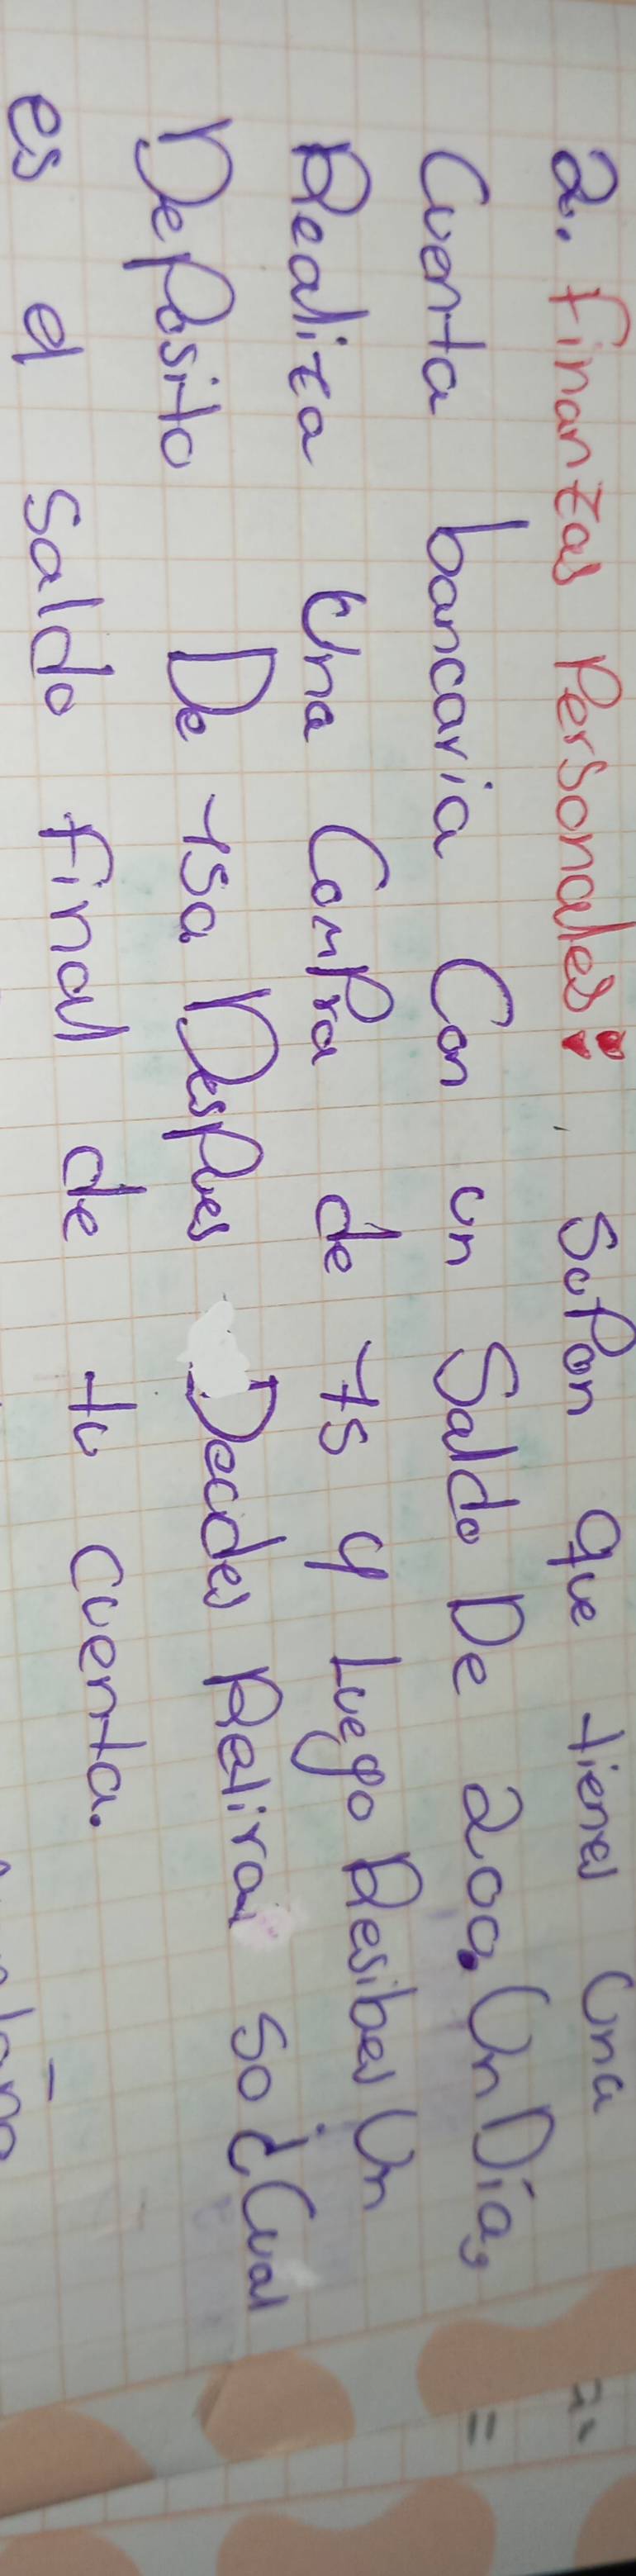 2. Finanzas Personales: Supon que tienes Una
Cuenta bancaria Con un Saldo De 200. Un Día,
Realiza Una Compra de 75 y Luego Resibes Un
Deposito De 150 Despues Decides Retirar 50 ¿Cual
es el saldo final de tu cuenta.